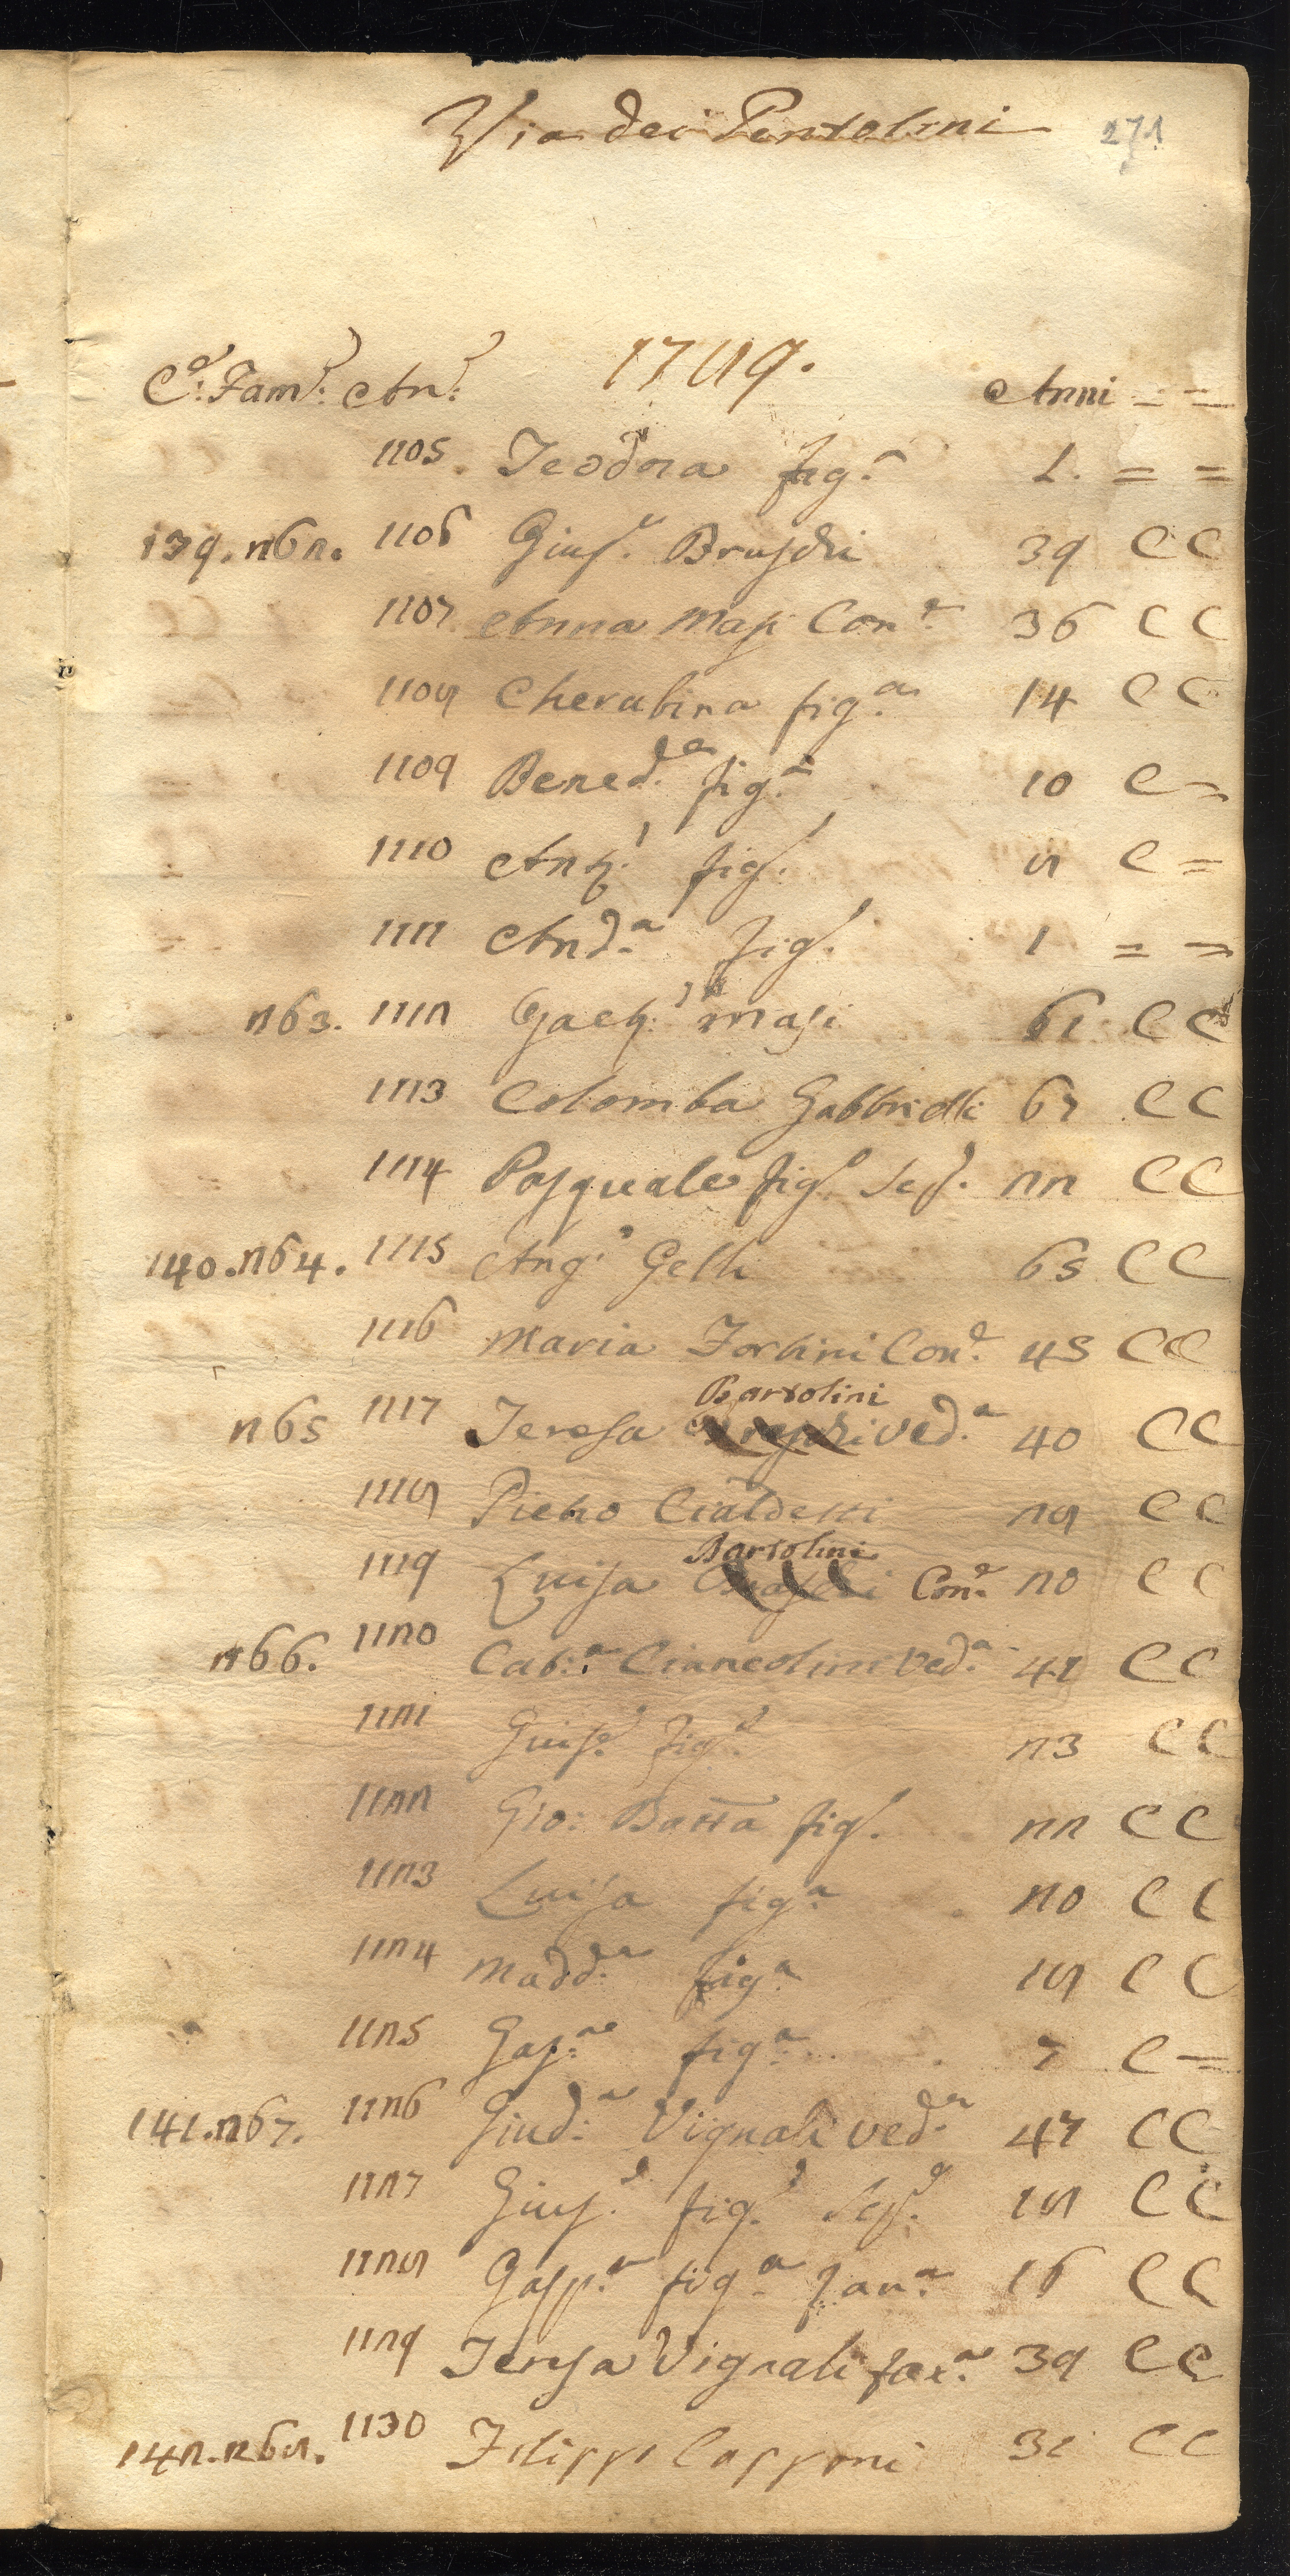 Via dei Pentolini 271
C.e Fam.e An.e 1789. Anni = =
1105 Teodora fig.a 1. = =
139. 262. 1106 Gius.e Bruschi 39 C C
1107 Anna Masi Con.e 36 C C
1108 Cherubina fig.a 14 C C
1109 Bened.a fig.a 10 C =
1110 Ant.o fig.o 8 C =
1111 And.a fig.o 1 = =
263. 1112 Gaet.o Masi 61 C C
1113 Colomba Gabbrielli 67 C C
1114 Pasquale fig.o Sc.o 22 C C
140. 264. 1115 Ang.o Gelli 65 C C
1116 Maria Forbini Con.e 45 C C
Bartolini
265 1117 Teresa Bruschi Ved.a 40 C C
1118 Pietro Cialdetti 28 C C
Bartolini
1119 Luisa Bruschi Con.e 20 C C
266. 1120 Cat.a Cianeolini Ved.a 41 C C
1121 Gius.e fig.o 23 C C
1122 Gio: Batta fig.o 22 C C
1123 Luisa fig.a 20 C C
1124 Madd.a fig.a 18 C C
1125 Gasp.a fig.a 7 C =
141. 267. 1126 Giud.a Vignali Ved.a 47 C C
1127 Gius.e fig.o Sc.o 18 C C
1128 Gasp.a fig.a fan.a 16 C C
1129 Teresa Vignali fan.a 39 C C
142. 268. 1130 Filippo Capponi 31 C C